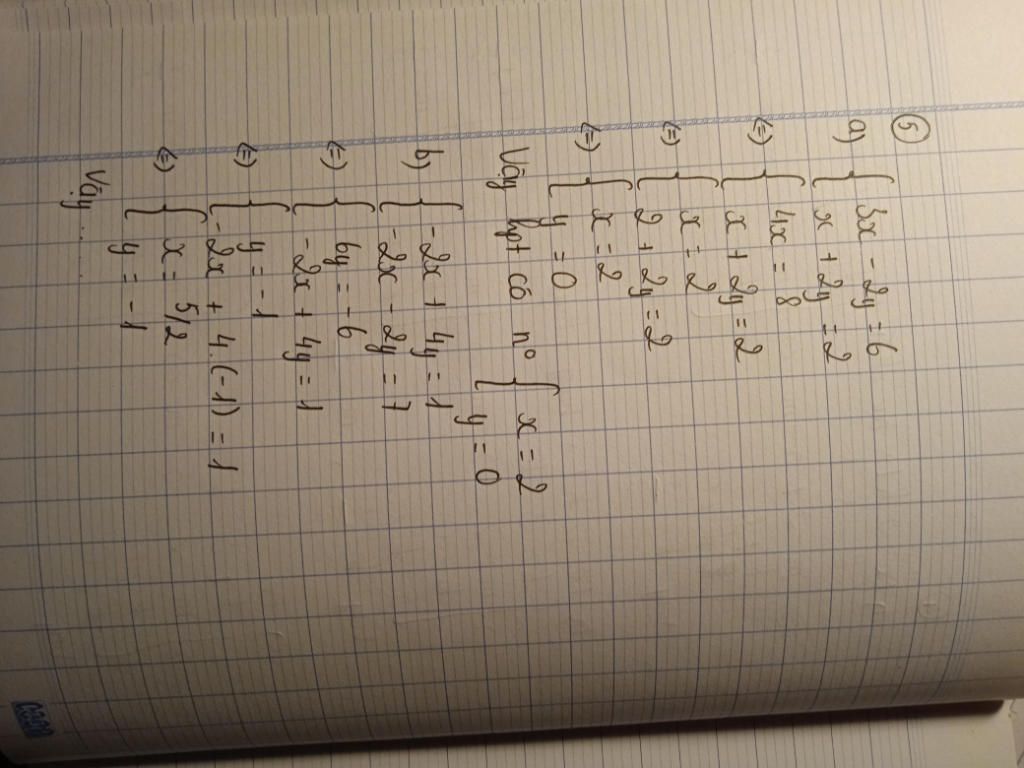 ⑤
a) { 3x - 2y = 6
{ x + 2y = 2
(=) { 4x = 8
{ x + 2y = 2
(=) { x = 2
{ 2 + 2y = 2
(=) { x = 2
{ y = 0
Vậy hpt có n° { x = 2
{ y = 0
b) { -2x + 4y = 1
{ -2x - 2y = 7
(=) { 6y = -6
{ -2x + 4y = 1
(=) { y = -1
{ -2x + 4.(-1) = 1
(=) { x = 5/2
{ y = -1
Vậy.....